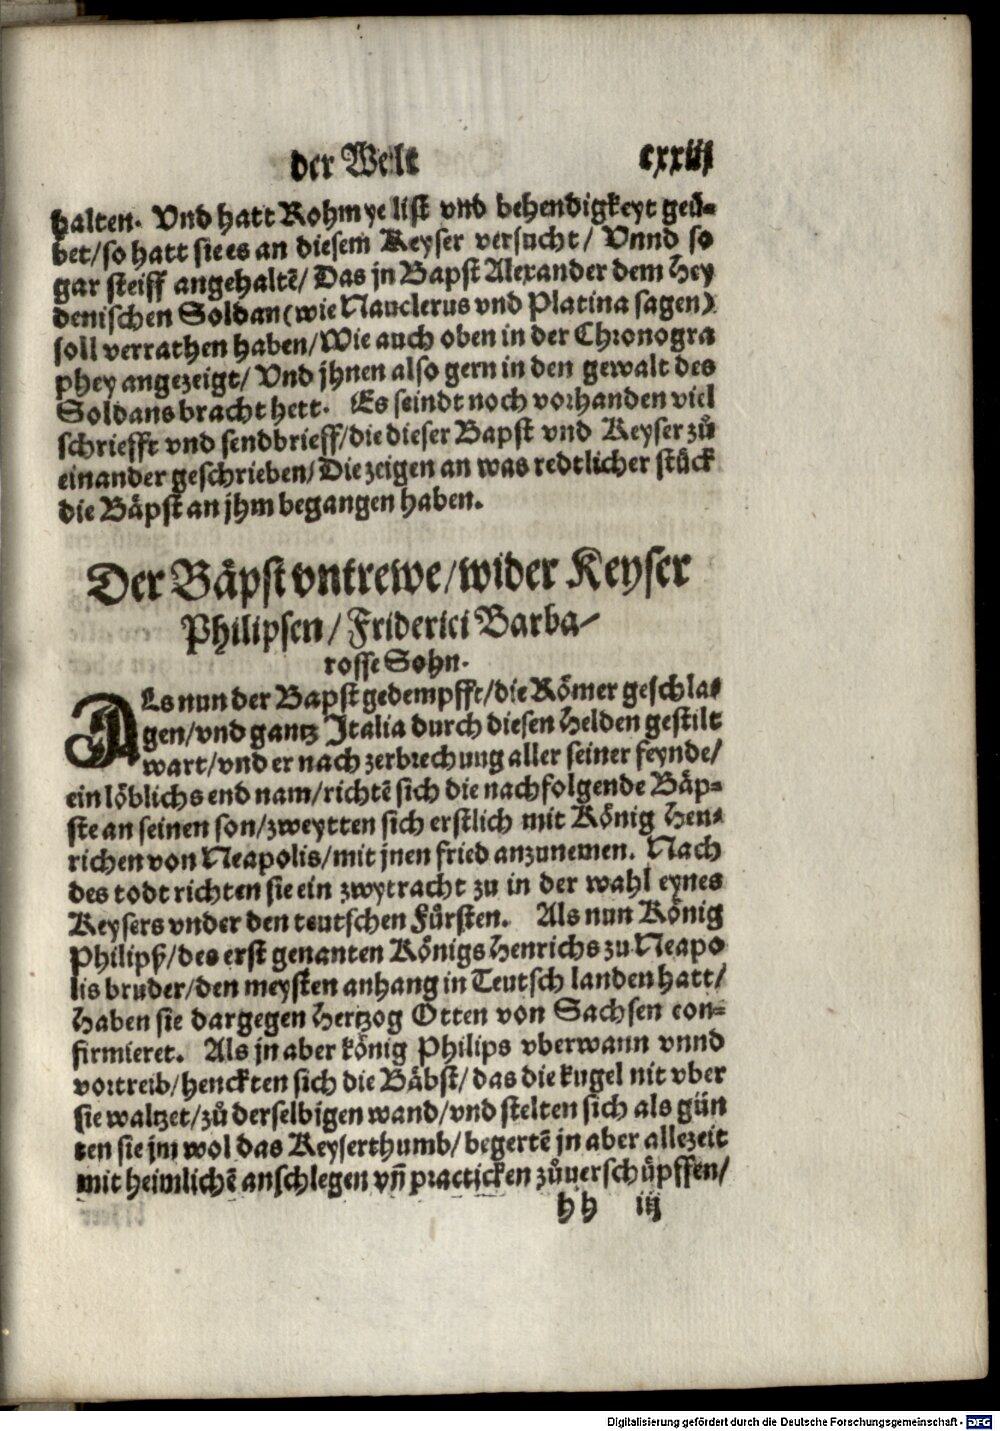 der Welt cxxiij
halten. Vnd hatt Rohm ye list vnd behendigkeyt geü-
bet/so hatt sie es an diesem Keyser versucht/ Vnnd so
gar steiff angehaltē/ Das jn Bapst Alexander dem Hey
denischen Soldan (wie Nauclerus vnd Platina sagen)
soll verrathen haben/Wie auch oben in der Chronogra
phey angezeigt/ Vnd jhnen also gern in den gewalt des
Soldans bracht hett. Es seindt noch vorhanden viel
schriefft vnd sendbrieff/die dieser Bapst vnd Keyser zů
einander geschrieben/ Die zeigen an was redtlicher stück
die Bäpst an jhm begangen haben.
Der Bäpst vntrewe/wider Keyser
Philipsen/Friderici Barba-
rosse Sohn.
Als nun der Bapst gedempfft/die Römer geschla-
gen/vnd gantz Italia durch diesen Helden gestilt
wart/vnd er nach zerbrechung aller seiner feynde/
ein löblichs end nam/richtē sich die nachfolgende Bäp-
ste an seinen son/zweytten sich erstlich mit König Hen-
richen von Neapolis/mit jnen fried anzunemen. Nach
des todt richten sie ein zwytracht zu in der wahl eynes
Keysers vnder den teutschen Fürsten. Als nun König
Philipß/des erst genanten Königs Henrichs zu Neapo
lis bruder/den meysten anhang in Teutsch landen hatt/
Haben sie dargegen Hertzog Otten von Sachsen con-
firmieret. Als jn aber könig Philips vberwann vnnd
vortreib/henckten sich die Bäbst/das die kugel nit vber
sie waltzet/zů derselbigen wand/vnd stelten sich als gün
ten sie jm wol das Keyserthumb/ begertē jn aber allezeit
mit heimlichē anschlegen vñ practicken zůuerschüpffen/
hh iij
Digitalisierung gefördert durch die Deutsche Forschungsgemeinschaft - DFG